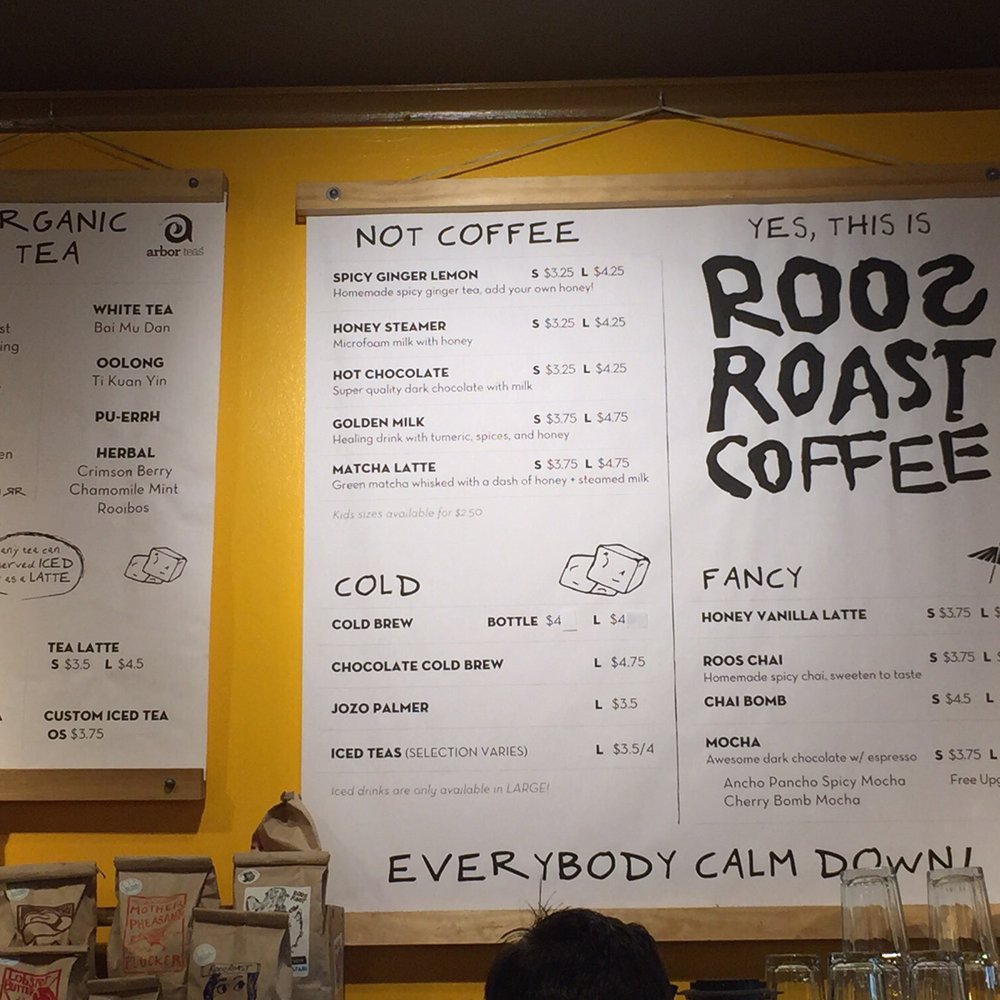 RGANIC
TEA
arbor teas
st
ing
en
WHITE TEA
Bai Mu Dan
OOLONG
Ti Kuan Yin
PU-ERRH
HERBAL
Crimson Berry
Chamomile Mint
Rooibos
any tea can
erved ICED
as a LATTE
TEA LATTE
S $3.5 L $4.5
CUSTOM ICED TEA
OS $3.75
NOT COFFEE
SPICY GINGER LEMON S $3.25 L $4.25
Homemade spicy ginger tea, add your own honey!
HONEY STEAMER S $3.25 L $4.25
Microfoam milk with honey
HOT CHOCOLATE S $3.25 L $4.25
Super quality dark chocolate with milk
GOLDEN MILK S $3.75 L $4.75
Healing drink with tumeric, spices, and honey
MATCHA LATTE S $3.75 L $4.75
Green matcha whisked with a dash of honey + steamed milk
Kids sizes available for $2.50
COLD
COLD BREW BOTTLE $4 L $4
CHOCOLATE COLD BREW L $4.75
JOZO PALMER L $3.5
ICED TEAS (SELECTION VARIES) L $3.5/4
Iced drinks are only available in LARGE!
YES, THIS IS
ROOS
ROAST
COFFEE
FANCY
HONEY VANILLA LATTE S $3.75 L $
ROOS CHAI S $3.75 L $
Homemade spicy chai, sweeten to taste
CHAI BOMB S $4.5 L
MOCHA
Awesome dark chocolate w/ espresso S $3.75 L
Ancho Pancho Spicy Mocha Free Upg
Cherry Bomb Mocha
EVERYBODY CALM DOWN!
MOTHER
PHEASANT
PLUCKER
LOBSTER
BUTTER